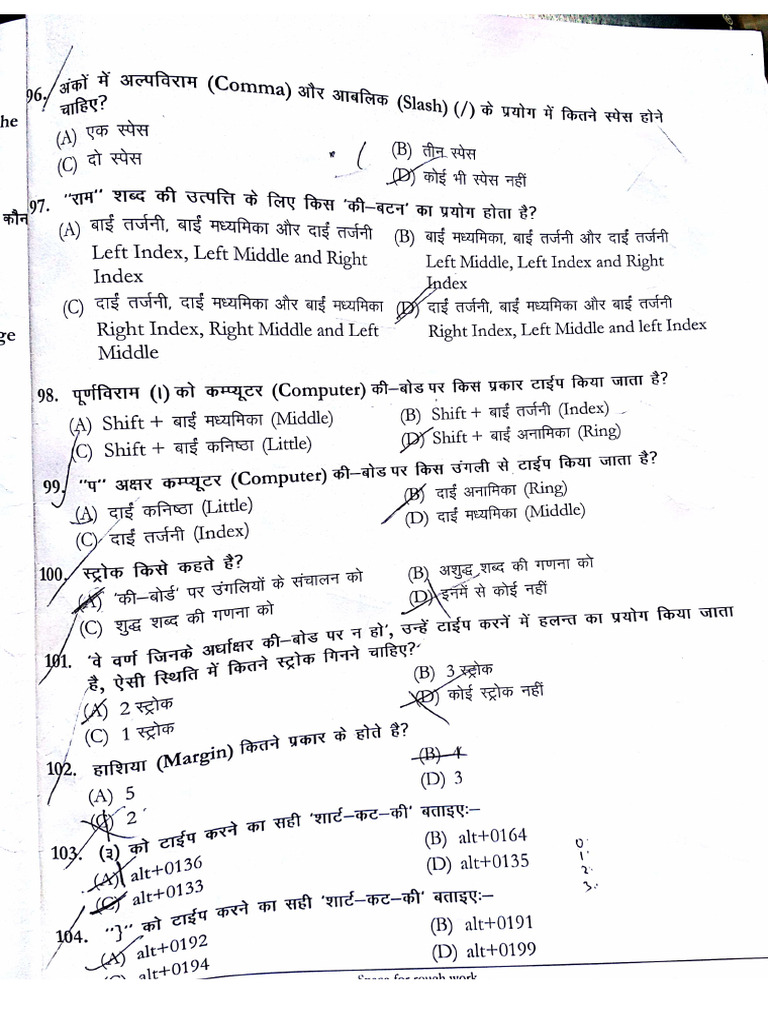 96. अंकों में अल्पविराम (Comma) और आबलिक (Slash) (/) के प्रयोग में कितने स्पेस होने
he
चाहिए?
(A) एक स्पेस
(B) तीन स्पेस
(C) दो स्पेस
(D) कोई भी स्पेस नहीं
97. "राम" शब्द की उत्पत्ति के लिए किस 'की–बटन' का प्रयोग होता है?
कौन
(A) बाईं तर्जनी, बाईं मध्यमिका और दाईं तर्जनी
Left Index, Left Middle and Right
Index
(B) बाईं मध्यमिका, बाईं तर्जनी और दाईं तर्जनी
Left Middle, Left Index and Right
Index
(C) दाईं तर्जनी, दाईं मध्यमिका और बाईं मध्यमिका
Right Index, Right Middle and Left
Middle
(D) दाईं तर्जनी, बाईं मध्यमिका और बाईं तर्जनी
Right Index, Left Middle and left Index
ge
98. पूर्णविराम (।) को कम्प्यूटर (Computer) की–बोड पर किस प्रकार टाईप किया जाता है?
(A) Shift + बाईं मध्यमिका (Middle)
(B) Shift + बाईं तर्जनी (Index)
(C) Shift + बाईं कनिष्ठा (Little)
(D) Shift + बाईं अनामिका (Ring)
99. "प" अक्षर कम्प्यूटर (Computer) की–बोड पर किस उंगली से टाईप किया जाता है?
(A) दाईं कनिष्ठा (Little)
(B) दाईं अनामिका (Ring)
(C) दाईं तर्जनी (Index)
(D) दाईं मध्यमिका (Middle)
100. स्ट्रोक किसे कहते है?
(A) 'की–बोर्ड' पर उंगलियों के संचालन को
(B) अशुद्ध शब्द की गणना को
(C) शुद्ध शब्द की गणना को
(D) इनमें से कोई नहीं
101. 'वे वर्ण जिनके अर्धाक्षर की–बोड पर न हो', उन्हें टाईप करनें में हलन्त का प्रयोग किया जाता
है, ऐसी स्थिति में कितने स्ट्रोक गिनने चाहिए?'
(A) 2 स्ट्रोक
(B) 3 स्ट्रोक
(C) 1 स्ट्रोक
(D) कोई स्ट्रोक नहीं
102. हाशिया (Margin) कितने प्रकार के होते है?
(A) 5
(B) 4
(C) 2
(D) 3
103. (३) को टाईप करने का सही 'शार्ट–कट–की' बताइएः–
(A) alt+0136
(B) alt+0164
(C) alt+0133
(D) alt+0135
0.
1.
2.
3.
104. "}" को टाईप करने का सही 'शार्ट–कट–की' बताइएः–
(A) alt+0192
(B) alt+0191
(C) alt+0194
(D) alt+0199
Space for rough work